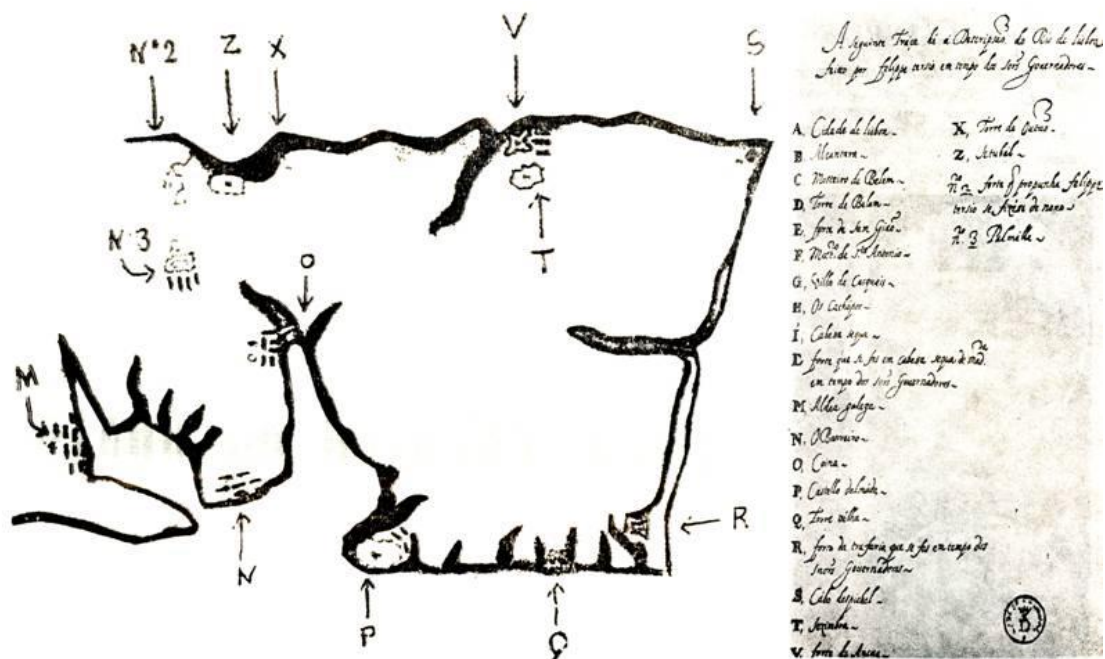 Nº2
Z
X
V
S
Nº3
O
T
M
N
P
Q
R
A seguinte Traça he a Descripção do Rio de lisboa
feita por felippe tersio em tempo dos Governadores
A, Cidade de lisboa
B Alcantara
C Mosteiro de Belem
D, Torre de Belem
E, de San Gião
F, de Sto Antonio
G, Villa de Casquais
H, Os Cachopos
I, Cabesa sequa
L forte que se fes em cabesa sequa de
em tempo dos Governadores
M, Aldea galega
N, O Barreiro
O, Coina
P, Castello dalmada
Q, Torre velha
R, da trafaria que se fes em tempo dos
Governadores
S, Cabo despichel
T,
V. forte da
X, Torre de
Z, Setubal
nº 2 forte q propunha felippe
tersio se fizese de novo
nº 3 Palmella